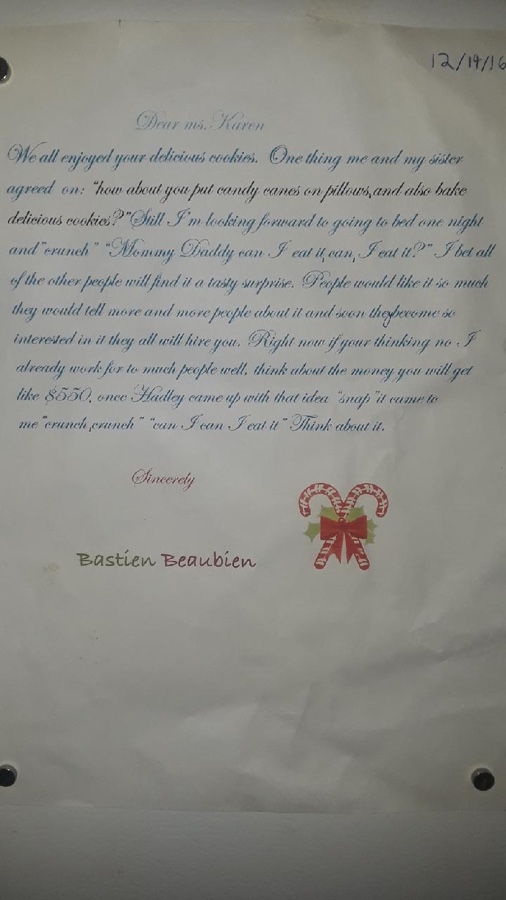 12/19/16
Dear ms. Karen
We all enjoyed your delicious cookies. One thing me and my sister
agreed on: "how about you put candy canes on pillows,and also bake
delicious cookies?"Still I'm looking forward to going to bed one night
and"crunch" "Mommy Daddy can I eat it, can, I eat it?" I bet all
of the other people will find it a tasty surprise. People would like it so much
they would tell more and more people about it and soon theybecome so
interested in it they all will hire you. Right now if your thinking no I
already work for to much people well, think about the money you will get
like $550, once Hadley came up with that idea "snap"it came to
me"crunch ,crunch" "can I can I eat it" Think about it.
Sincerely
Bastien Beaubien